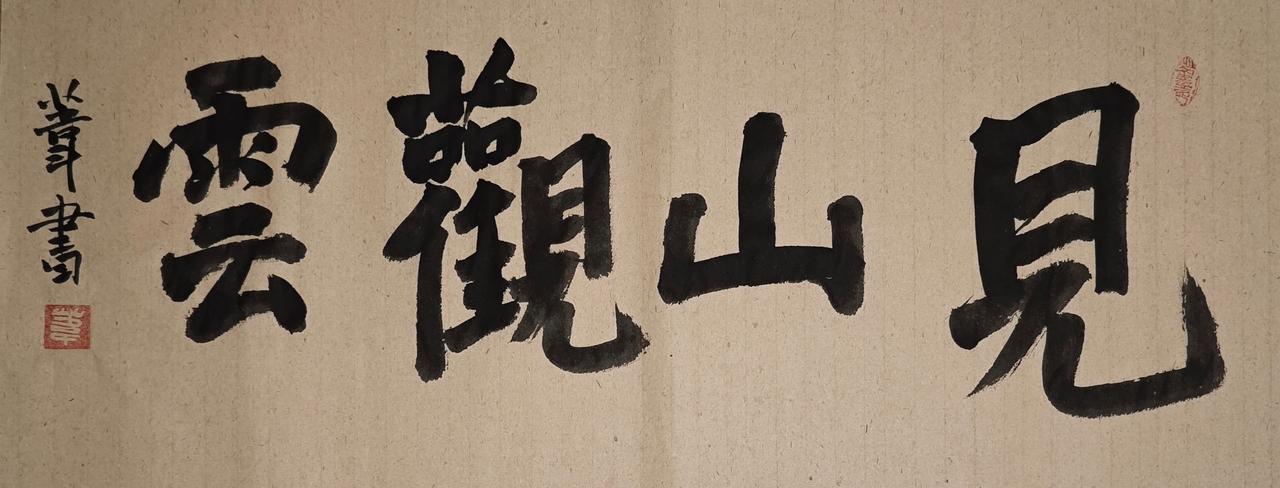 見山觀雲
葦書